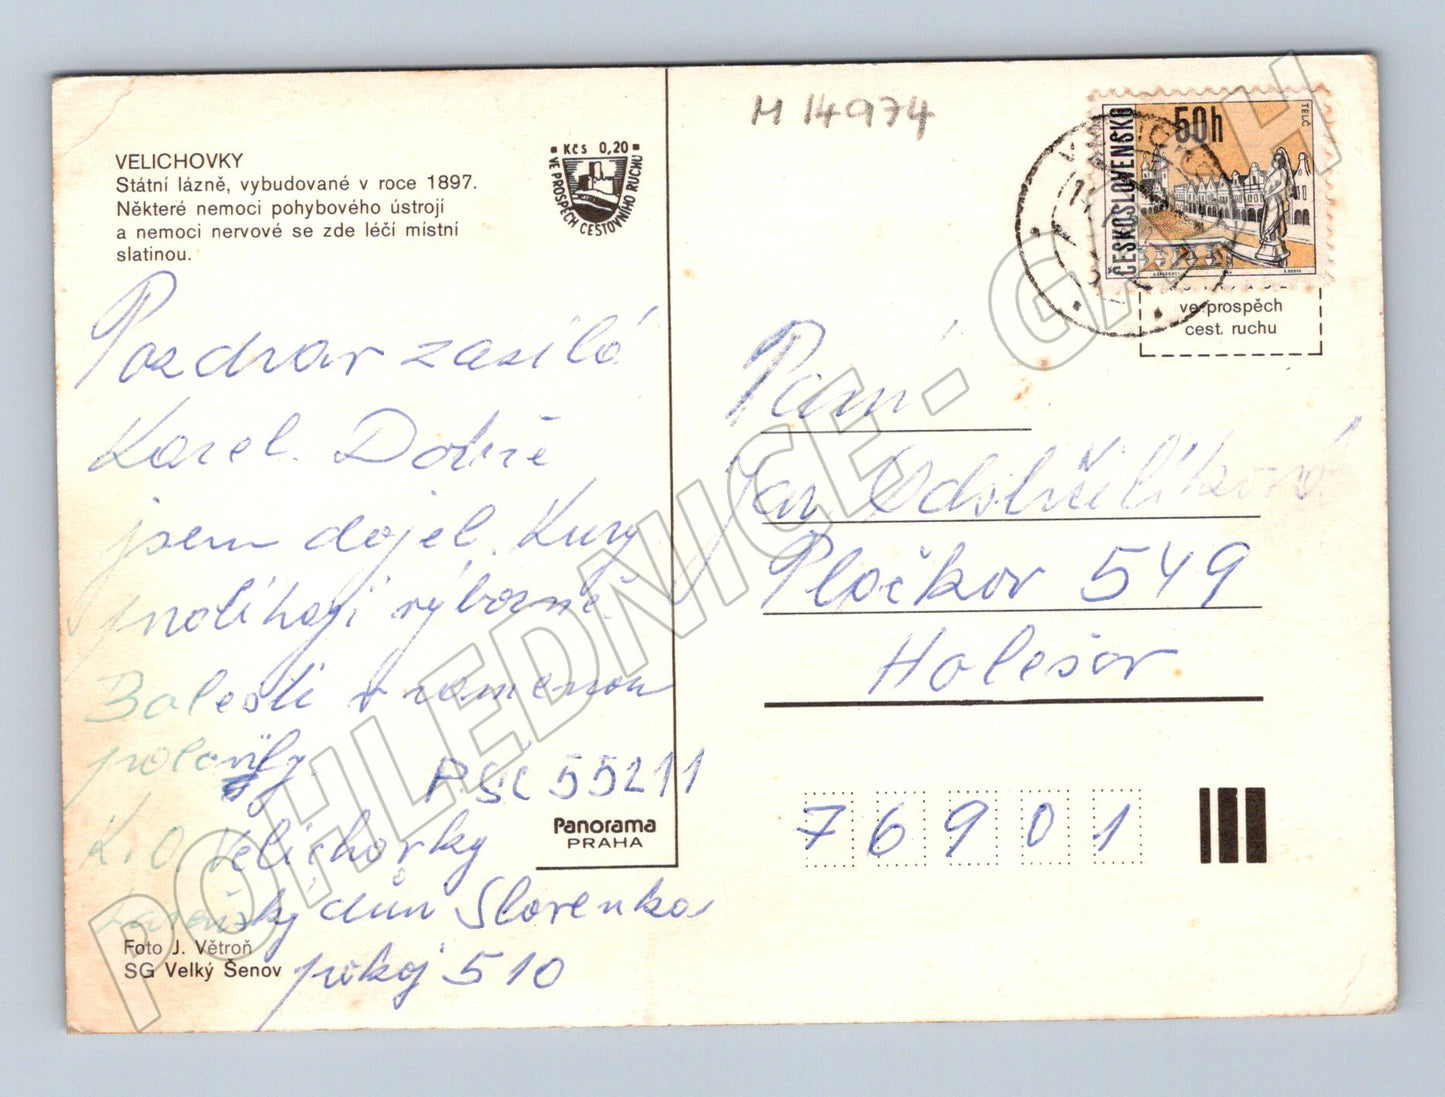 VELICHOVKY
Státní lázně, vybudované v roce 1897.
Některé nemoci pohybového ústrojí
a nemoci nervové se zde léčí místní
slatinou.
Kčs 0,20
VE PROSPĚCH CESTOVNÍHO RUCHU
M 14974
ČESKOSLOVENSKO
50h
TELČ
ve prospěch
cest. ruchu
Pozdrav zasílá
Karel. Dobře
jsem dojel. Kury
probíhají výborně.
Bolesti v rameno
polevily.
PSČ 55211
K. O. Velichovky
Lázeňský dům Slovenka
pokoj 510
Foto J. Větroň
SG Velký Šenov
Panorama
PRAHA
Pan
Jan
Plačkov 549
Holešov
76901
POHLEDNICE - GARAH